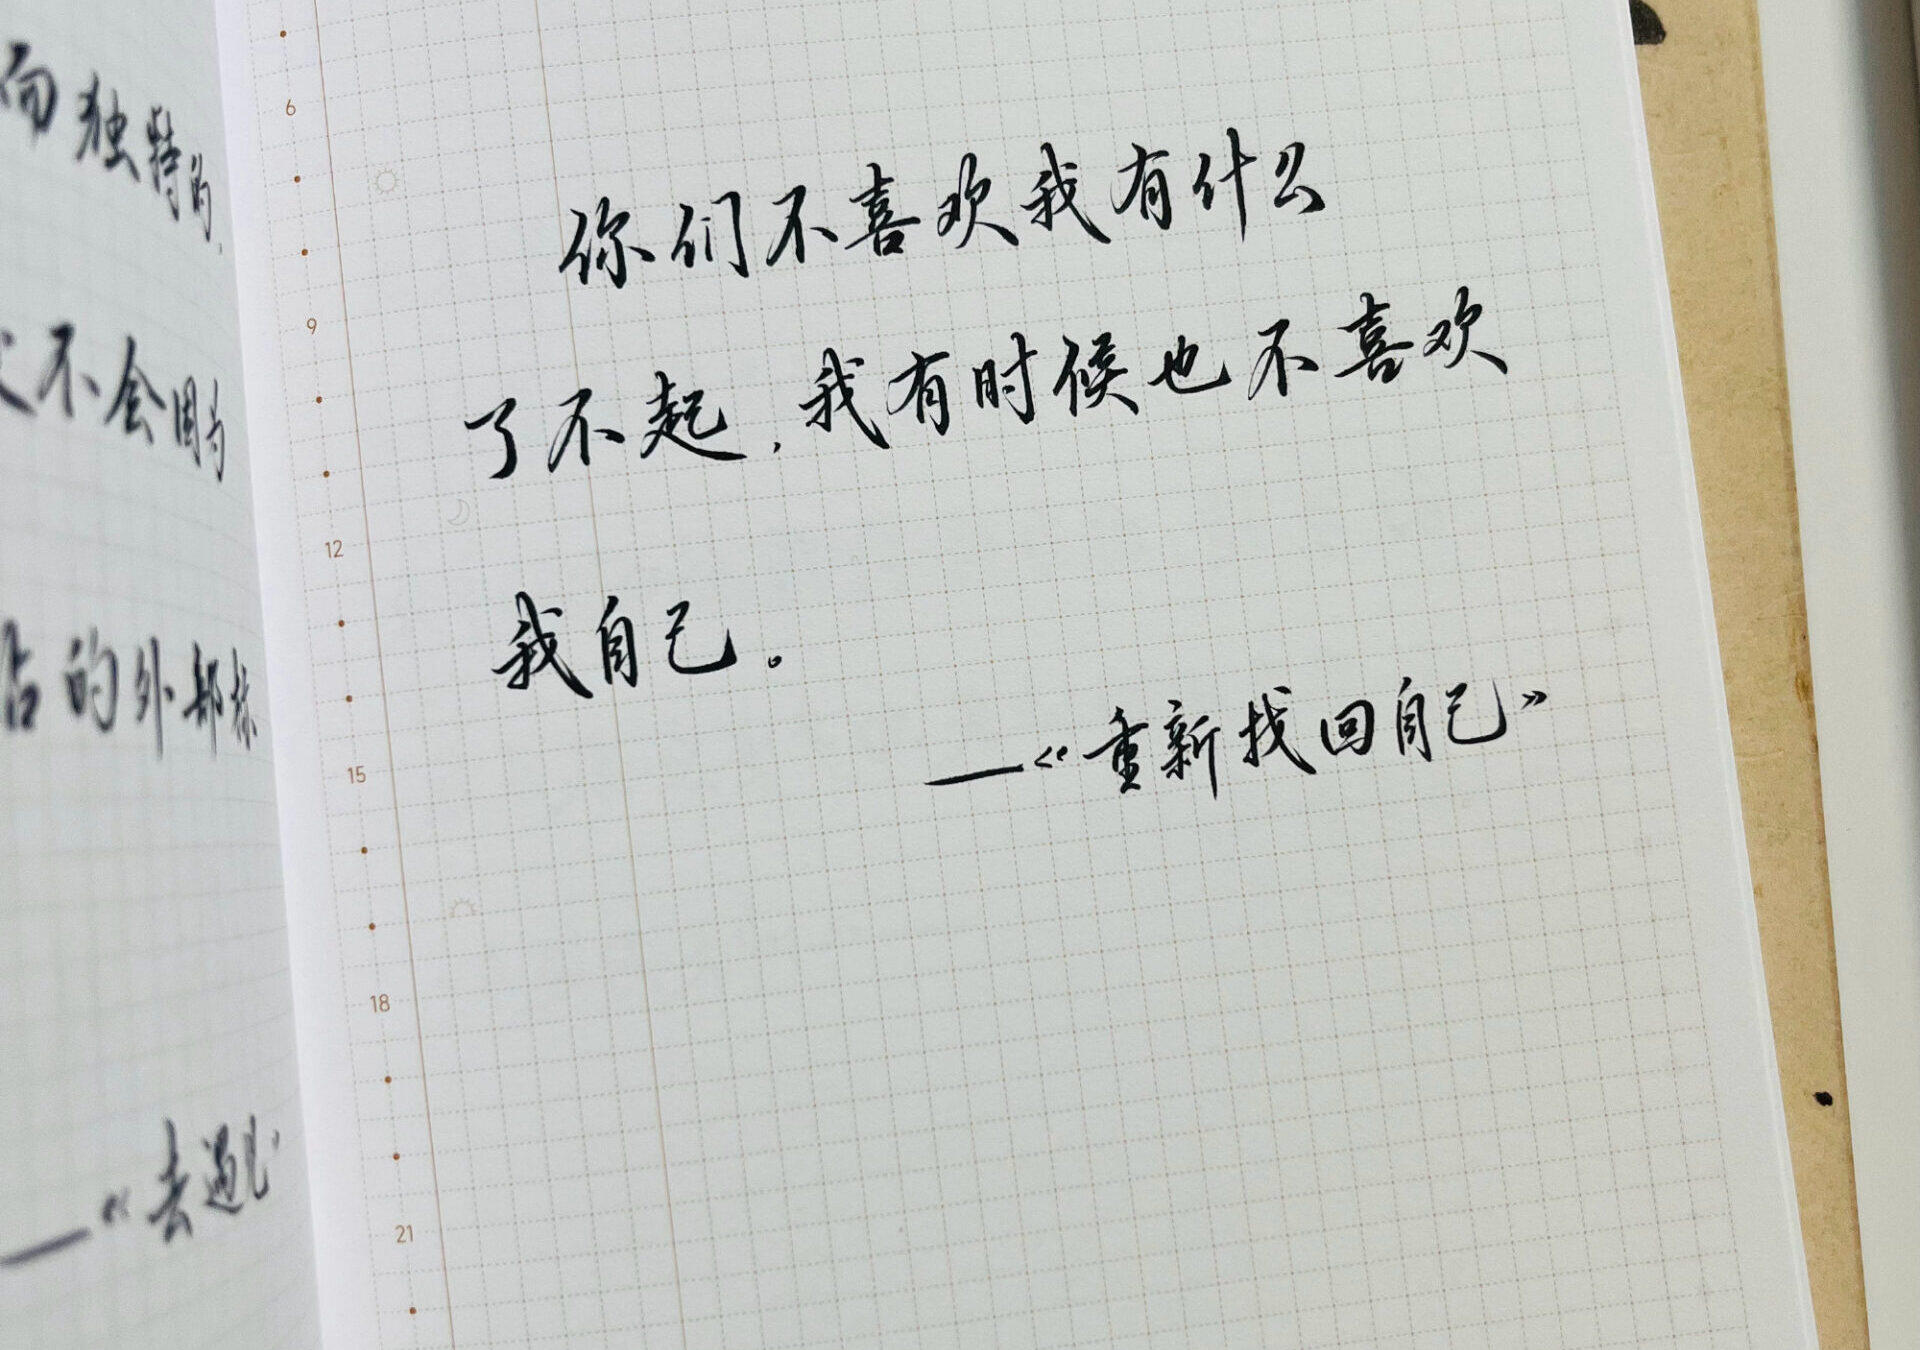 而独特的,
不会因为
的外部标
——《去遇见
6
9
12
15
18
21
你们不喜欢我有什么
了不起,我有时候也不喜欢
我自己。
——《重新找回自己》